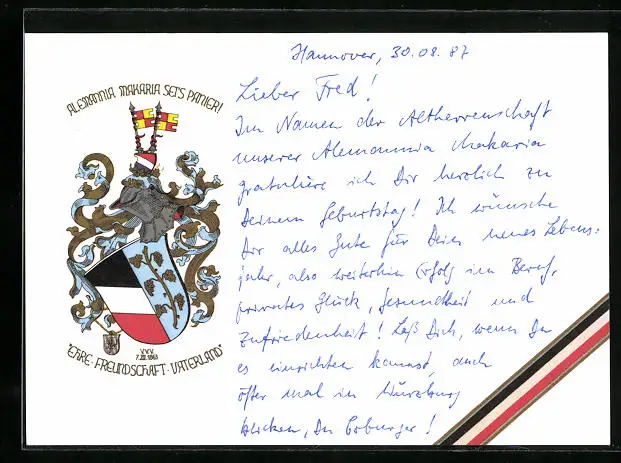 ALEMANNIA MAKARIA SEI'S PANIER!
V.V.V.
7.III.1863
"EHRE · FREUNDSCHAFT · VATERLAND"
Hannover, 30.08.87
Lieber Fred!
Im Namen der Altherrenschaft
unserer Alemannia Makaria
gratuliere ich Dir herzlich zu
Deinem Geburtstag! Ich wünsche
Dir alles Gute für Dein neues Lebens-
jahr, also weiterhin Erfolg im Beruf,
privates Glück, Gesundheit und
Zufriedenheit! Laß Dich, wenn Du
es einrichten kannst, auch
öfter mal in Würzburg
blicken, Du Coburger!